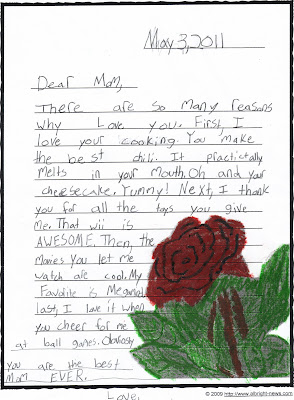 May 3, 2011
Dear Mom,
There are so many reasons
why Love you. First, I
love your cooking. You make
the best chili. It practictally
melts in your mouth. Oh and your
cheesecake. Yummy! Next, I thank
you for all the toys you give
me. That wii is
AWESOME. Then, the
movies You let me
watch are cool. My
Favorite is Megamind.
last, I love it when
you cheer for me
at ball games.
you are the best
Mom EVER.
Love,
© 2009 http://www.albright-news.com